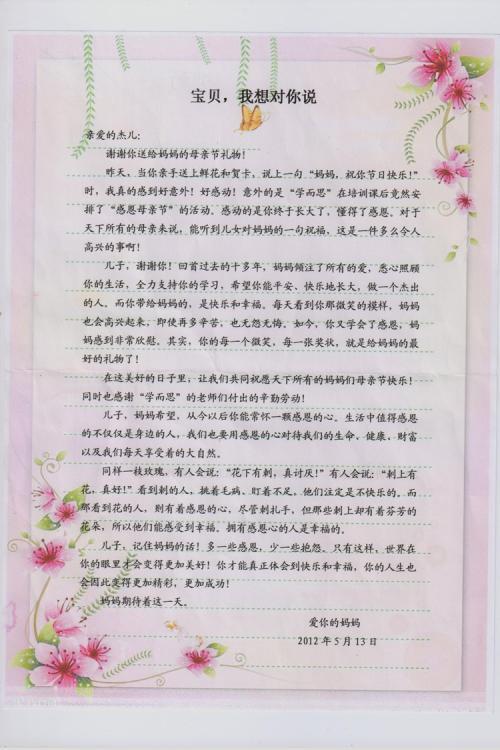 宝贝，我想对你说
亲爱的杰儿：
谢谢你送给妈妈的母亲节礼物！
昨天，当你亲手送上鲜花和贺卡，说上一句“妈妈，祝你节日快乐！”
时，我真的感到好意外！好感动！意外的是“学而思”在培训课后竟然安
排了“感恩母亲节”的活动。感动的是你终于长大了，懂得了感恩。对于
天下所有的母亲来说，能听到儿女对妈妈的一句祝福，这是一件多么令人
高兴的事啊！
儿子，谢谢你！回首过去的十多年，妈妈倾注了所有的爱，悉心照顾
你的生活，全力支持你的学习，希望你能平安、快乐地长大，做一个杰出
的人。而你带给妈妈的，是快乐和幸福。每天看到你那微笑的模样，妈妈
也会高兴起来，即使再多辛苦，也无怨无悔。如今，你又学会了感恩，妈
妈感到非常欣慰。其实，你的每一个微笑，每一张奖状，就是给妈妈的最
好的礼物了！
在这美好的日子里，让我们共同祝愿天下所有的妈妈们母亲节快乐！
同时也感谢“学而思”的老师们付出的辛勤劳动！
儿子，妈妈希望，从今以后你能常怀一颗感恩的心。生活中值得感恩
的不仅仅是身边的人，我们也要用感恩的心对待我们的生命、健康、财富
以及我们每天享受着的大自然。
同样一枝玫瑰，有人会说：“花下有刺，真讨厌！”有人会说：“刺上有
花，真好！”看到刺的人，挑着毛病、盯着不足，他们注定是不快乐的。而
那看到花的人，则有着感恩的心，尽管刺扎手，但那些刺上却有着芬芳的
花朵，所以他们能感受到幸福。拥有感恩心的人是幸福的。
儿子，记住妈妈的话！多一些感恩，少一些抱怨。只有这样，世界在
你的眼里才会变得更加美好！你才能真正体会到快乐和幸福，你的人生也
会因此变得更加精彩，更加成功！
妈妈期待着这一天。
爱你的妈妈
2012年5月13日